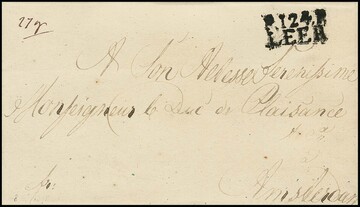 P.124.P.
LEER
A Son Altesse Serenissime
Monseigneur le Duc de Plaisance
Amsterdam